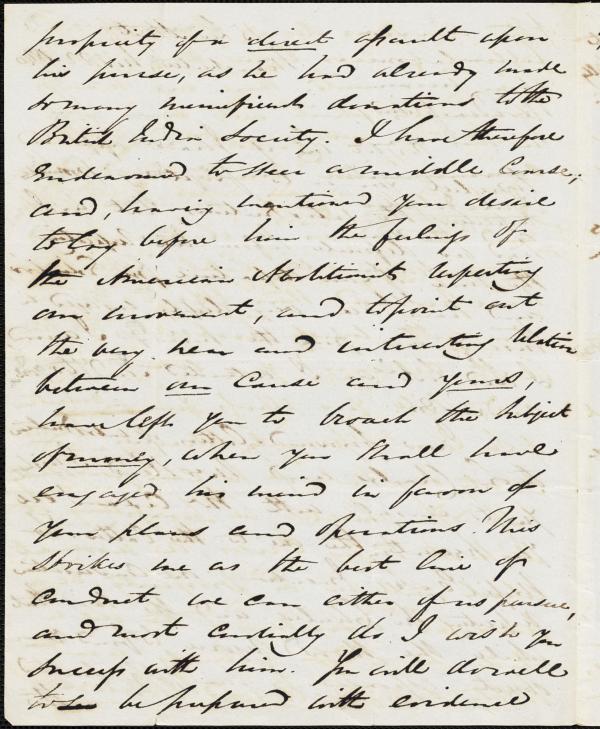 propriety of a direct assault upon
his purse, as he had already made
so many munificent donations to the
British India Society. I have therefore
endeavoured to steer a middle course;
and, having mentioned your desire
to lay before him the feelings of
the American Abolitionists respecting
our movement, and to point out
the very near and interesting relation
between our Cause and yours,
have left you to broach the subject
of money, when you shall have
engaged his mind in favor of
your plans and operations. This
strikes me as the best line of
conduct we can either of us pursue,
and most cordially do I wish you
success with him. You will do well
to be prepared with evidence